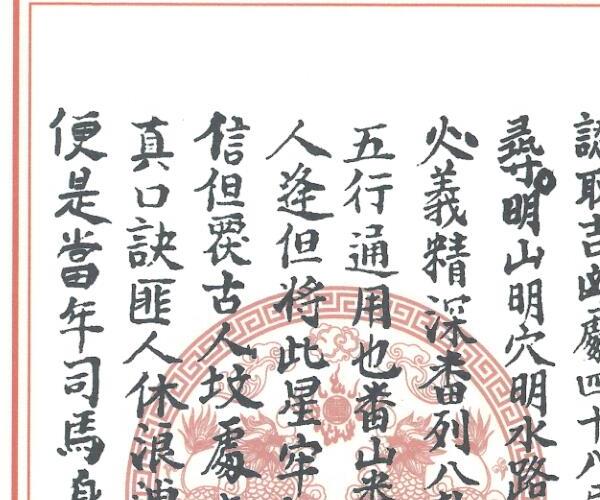 認取吉凶處四十八
尋明山明穴明水路
必義精深番列八
五行通用也番山来
人逢但將此星牢
信但覆古人坟處
真口訣匪人休浪
便是當年司馬身